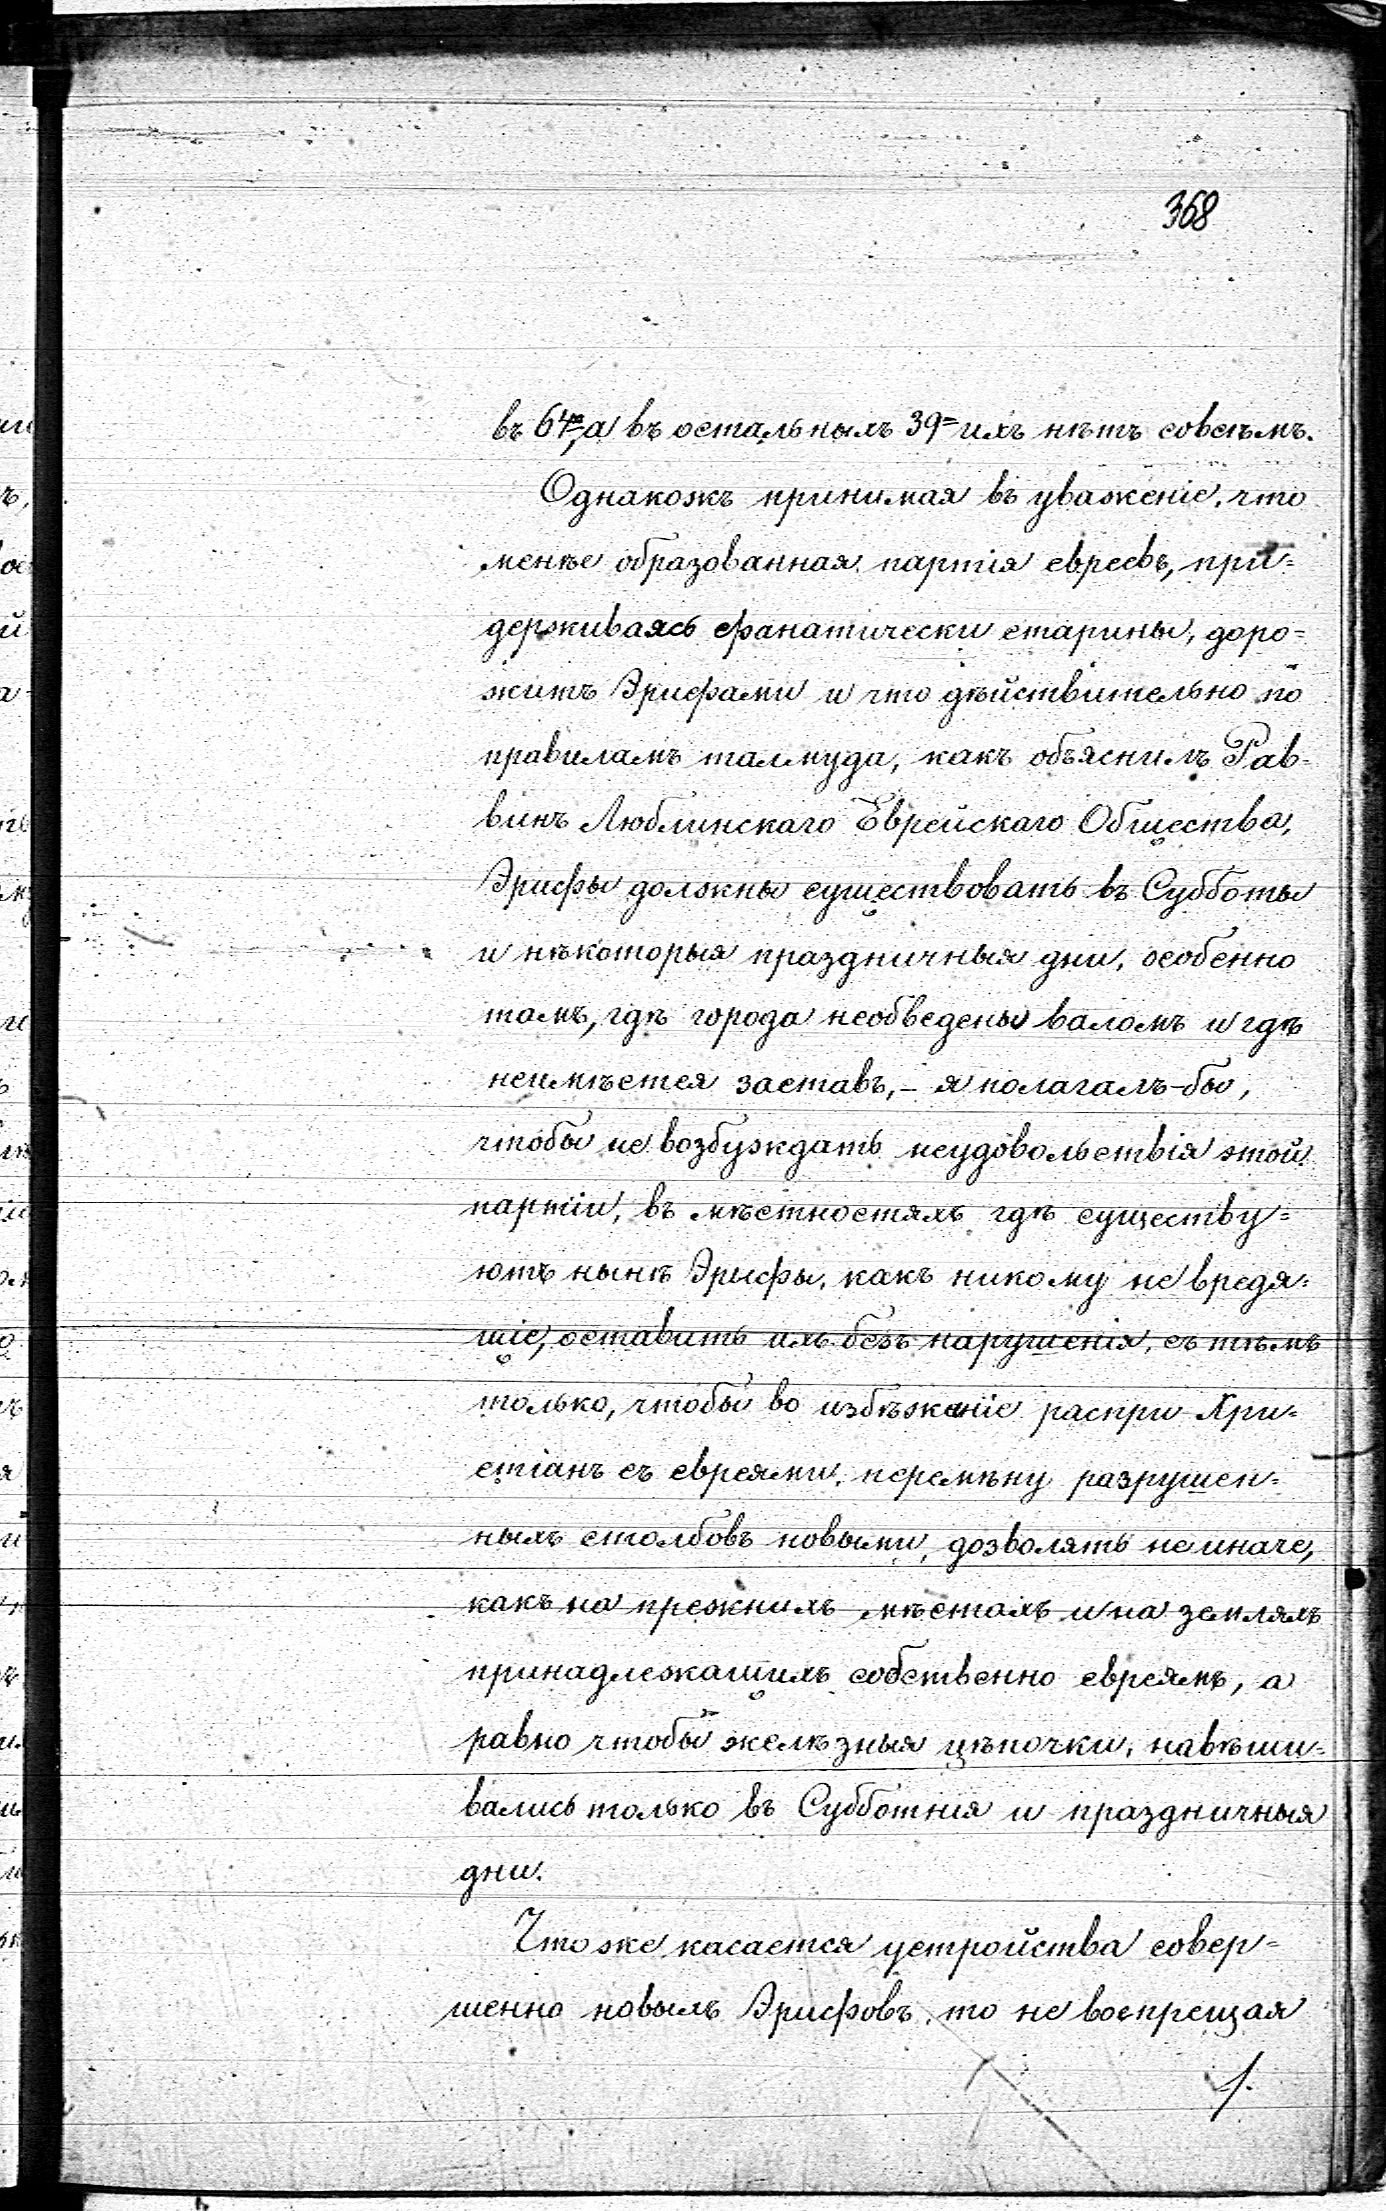 368
въ 64хъ, а въ остальныхъ 39= ихъ нѣтъ совсѣмъ.
Однакожъ принимая въ уваженіе, что
менѣе образованная партія евреевъ, при=
держиваясь фанатически старины, доро=
житъ Эрифами и что дѣйствительно по
правиламъ талмуда, какъ объяснилъ Рав-
винъ Люблинскаго Еврейскаго Общества,
Эрифы должны существовать въ Субботы
и нѣкоторыя праздничныя дни, особенно
тамъ, гдѣ города необведены валомъ и гдѣ
неимѣется заставъ, – я полагалъ-бы,
чтобы не возбуждать неудовольствія этой
партіи, въ мѣстностяхъ гдѣ существу=
ютъ нынѣ Эрифы, какъ никому не вредя=
щіе, оставить ихъ безъ нарушенія, съ тѣмъ
только, чтобы во избѣжаніе распри Хри=
стіанъ съ евреями, перемѣну разрушен=
ныхъ столбовъ новыми, дозволять не иначе,
какъ на прежнихъ мѣстахъ и на земляхъ
принадлежащихъ собственно евреямъ, а
равно чтобы желѣзныя цѣпочки, навѣши=
вались только въ Субботнія и праздничныя
дни.
Что же касается устройства совер=
шенно новыхъ Эрифовъ, то не воспрещая